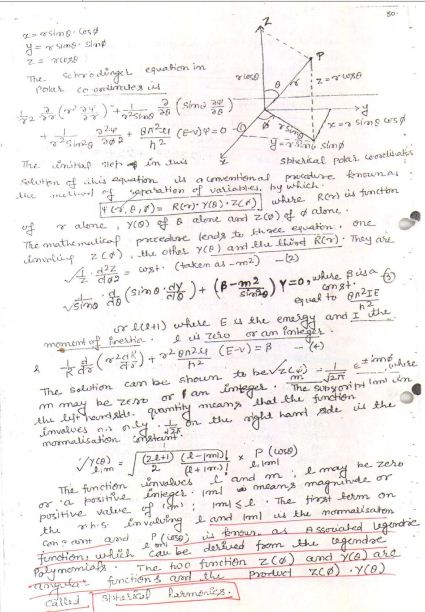 80.
x = r sinθ · cosϕ
y = r sinθ · sinϕ
z = r cosθ
z
P
r cosθ
θ
r
z = r cosθ
y
ϕ
r sinθ
x = r sinθ cosϕ
y = r sinθ sinϕ
x
spherical polar coordinates
The schrodinger equation in
polar co-ordinates is
1/r² ∂/∂r (r² ∂Ψ/∂r) + 1/r² sinθ ∂/∂θ (sinθ ∂Ψ/∂θ)
+ 1/r² sin²θ ∂²Ψ/∂ϕ² + 8π²μ/h² (E-V)Ψ = 0 -①
The initial step in this
solution of this equation is a conventional procedure known as
the method of separation of variables, by which.
Ψ(r, θ, ϕ) = R(r)· Y(θ)· Z(ϕ) where R(r) is function
of r alone, Y(θ) of θ alone and Z(ϕ) of ϕ alone.
The mathematical procedure leads to three equation, one
involving Z(ϕ), the other Y(θ) and the third R(r). They are
1/Z d²Z/dϕ² = const. (taken as -m²) —(2)
1/sinθ · d/dθ (sinθ · dY/dθ) + (β - m²/sin²θ) Y = 0, where β is a ③
const.
equal to 8π²IE/h²
or l(l+1) where E is the energy and I the
moment of inertia. l is zero or an integer.
& 1/R d/dr (r² dR/dr) + r² 8π²μ/h² (E-V) = β —(4)
The solution can be shown to be √Z(ϕ)m = 1/√2π e^±imϕ, where
m may be zero or an integer. The subscript |m| in
the left handside. quantity means that the function
involves m only. 1/√2π on the right hand side is the
normalisation constant.
√Y(θ) l,m = √((2l+1)/2 (l-|m|)!/(l+|m|)!) × P(cosθ) l,|m|
The function involves l and m, l may be zero
or a positive integer. |m| means magnitude or
positive value of |m|; |m| ≤ l. The first term on
the r.h.s. involving l and |m| is the normalisation
constant and P(cosθ) l,|m| is known as Associated legendre
function, which can be derived from the legendre
Polynomials. The two function Z(ϕ) and Y(θ) are
angular functions and the product Z(ϕ)·Y(θ)
called spherical harmonics.